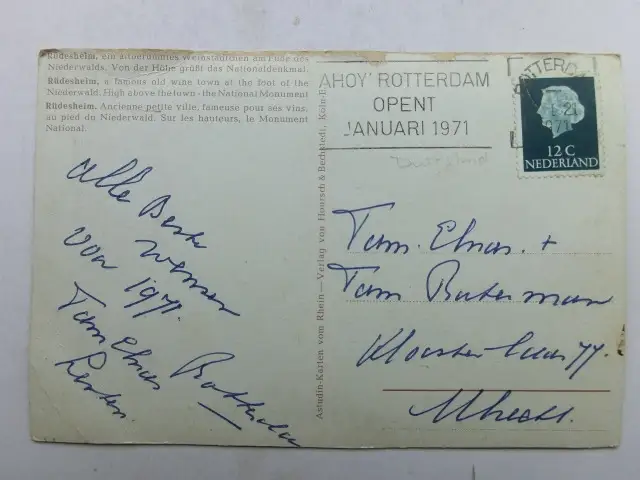 Rüdesheim, ein altberühmtes Weinstädtchen am Fuße des
Niederwalds. Von der Höhe grüßt das Nationaldenkmal.
Rüdesheim, a famous old wine town at the foot of the
Niederwald. High above the town - the National Monument
Rüdesheim. Ancienne petite ville, fameuse pour ses vins,
au pied du Niederwald. Sur les hauteurs, le Monument
National.
Alle Beste
wensen
voor 1971.
Fam
Rotterdam
Astudin-Karten vom Rhein — Verlag von Hoursch & Bechstedt, Köln
AHOY' ROTTERDAM
OPENT
JANUARI 1971
ROTTERDAM
1971
12 C
NEDERLAND
Duitsland
Fam. +
Fam
Utrecht.